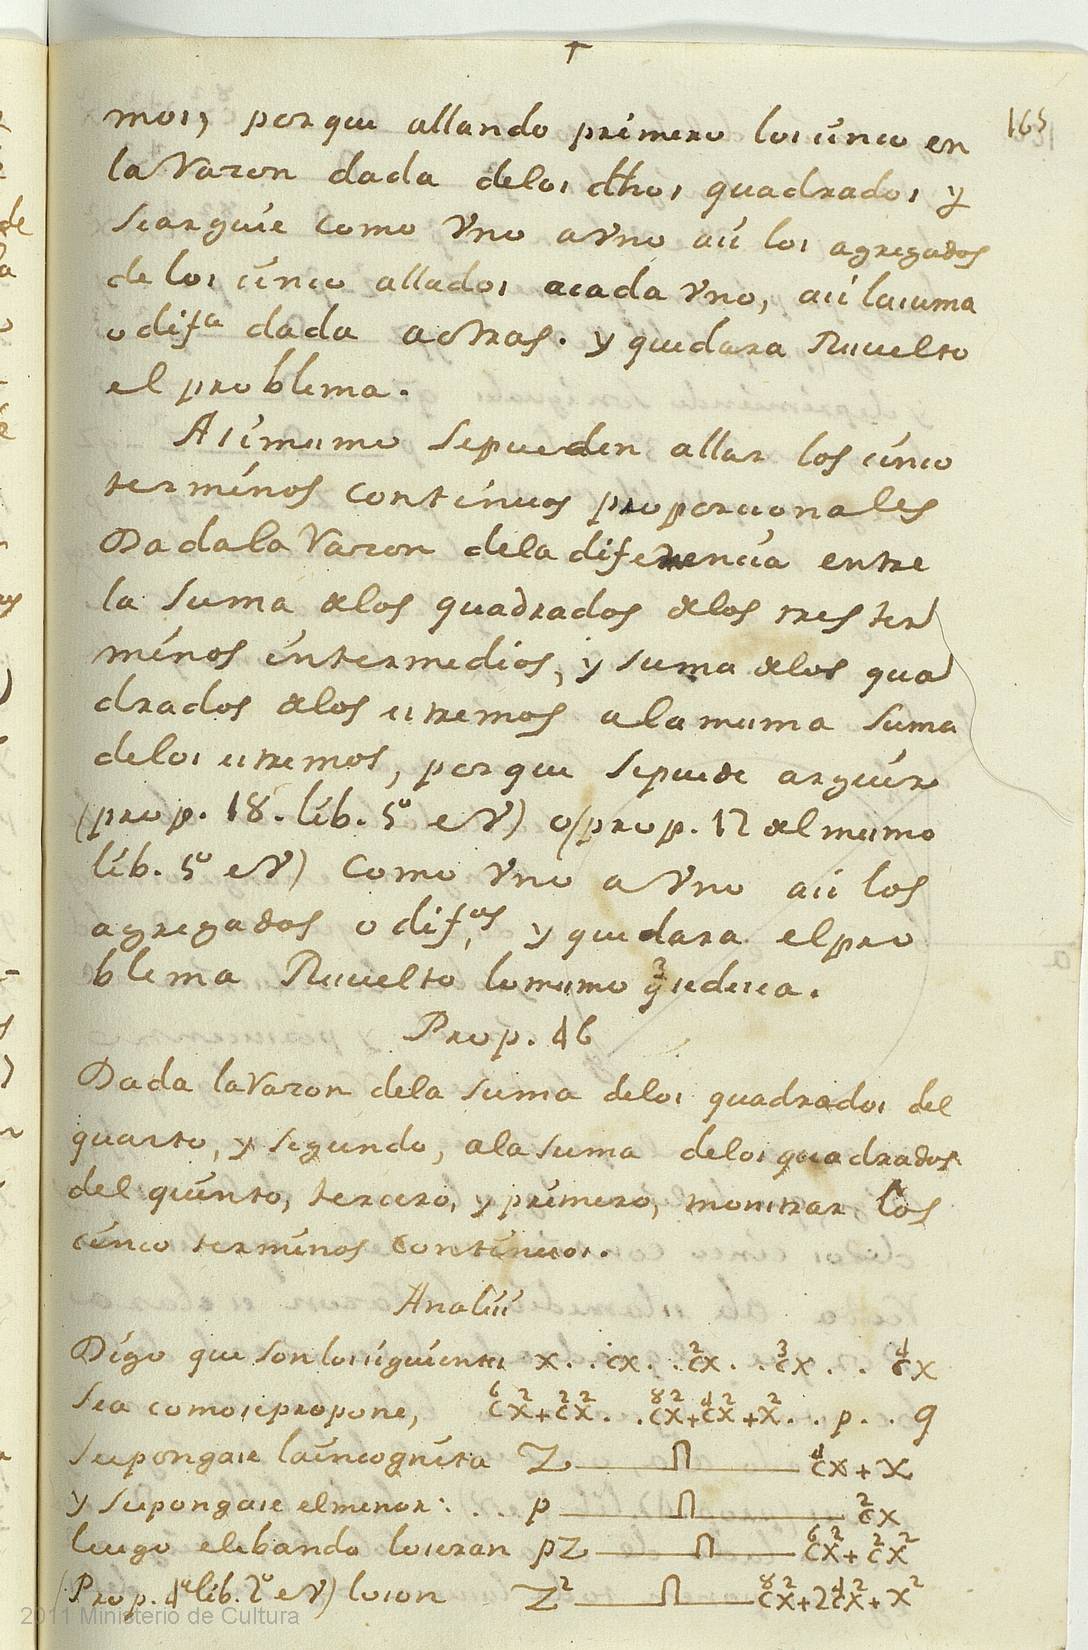 165
mos, porque allando primero los cinco en
la razon dada delos dhos quadrados y
searguie como vno avno asi los agregados
de los cinco allados acada vno, asi lasuma
o difa dada aotras. y quedara Resuelto
el problema.
Asimismo sepueden allar los cinco
terminos continuos proporcionales
Dadala razon dela diferencia entre
la suma delos quadrados delos tres ter
minos intermedios, y suma delos qua
drados delos estremos ala misma suma
delos estremos, porque sepuede arguir
(prop. 18. lib. 5º eV) o (prop. 17 del mismo
lib. 5º eV) como vno avno asi los
agregados o difas y quedara elpro
blema Resuelto lomismo
Prop. 46
Dada larazon dela suma delos quadrados del
quarto, y segundo, ala suma delos quadrados
del quinto, tercero, y primero, monstrar los
cinco terminos continuos.
Analisis
Digo que son los siguientes x . . cx . . c²x . . c³x . . c⁴x
Sea comosepropone, c⁶x²+c²x² . . c⁸x²+c⁴x²+x² . . p . . q
Supongase laincognita Z — Π — c⁴x + x
y supongase elmenor: . . p — Π — c²x
luego elebando loseran pZ — Π — c⁶x²+c²x²
(Prop. 4ª lib. 2º eV) loson Z² — Π — c⁸x²+2c⁴x²+x²
2011 Ministerio de Cultura